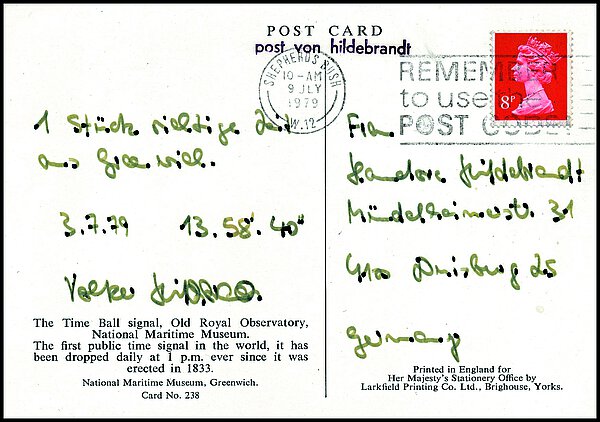 POST CARD
post von hildebrandt
SHEPHERDS BUSH
10-AM
9 JLY
1979
W.12
REMEMBER
to use the
POST CODE
8P
1 Stück richtige Zeit
aus Greenwich.
3.7.79 13.58'.40"
Volker Hildebrandt
Frau
Hannelore Hildebrandt
Mündelheimerstr. 31
4100 Duisburg 25
Germany
The Time Ball signal, Old Royal Observatory,
National Maritime Museum.
The first public time signal in the world, it has
been dropped daily at 1 p.m. ever since it was
erected in 1833.
National Maritime Museum, Greenwich.
Card No. 238
Printed in England for
Her Majesty's Stationery Office by
Larkfield Printing Co. Ltd., Brighouse, Yorks.